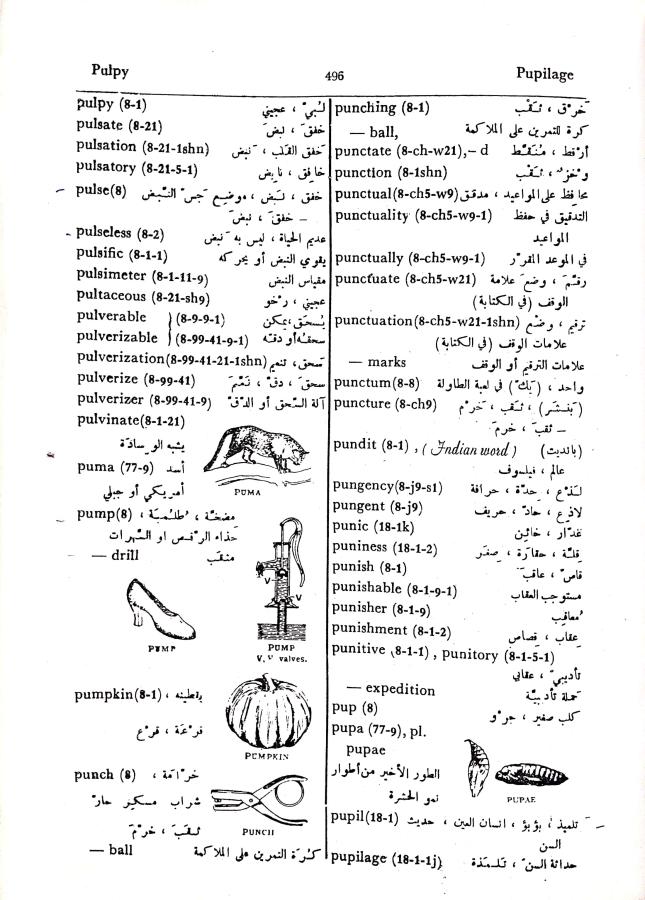 Pulpy
496
Pupilage
pulpy (8-1) لُبيّ ، عجيني
pulsate (8-21) خفقَ ، نبضَ
pulsation (8-21-1shn) خفق القلب ، نبض
pulsatory (8-21-5-1) خافق ، نابض
pulse(8) خفق ، نبض ، موضع جس النبض
– خفقَ ، نبضَ
pulseless (8-2) عديم الحياة ، ليس به نبض
pulsific (8-1-1) يقوي النبض أو يحركه
pulsimeter (8-1-11-9) مقياس النبض
pultaceous (8-21-sh9) عجيني ، رخو
pulverable } (8-9-9-1) يُسحق ، يمكن
pulverizable } (8-99-41-9-1) سحقه أو دقه
pulverization(8-99-41-21-1shn) سحق ، تنعيم
pulverize (8-99-41) سحقَ ، دقّ ، نعّم
pulverizer (8-99-41-9) آلة السّحق أو الدّق
pulvinate(8-1-21)
يشبه الوسادة
puma (77-9) أسد
أمريكي أو جبلي
PUMA
pump(8) مضخة ، طلمبة ،
حذاء الرقص او السهرات
— drill مثقب
V
V
PUMP
PUMP
V, V valves.
pumpkin(8-1) يقطينة ،
قرعة ، قرع
PUMPKIN
punch (8) خرّامة ،
شراب مسكير حارّ
ثقبَ ، خرّمَ
PUNCH
— ball كرة التمرين على الملاكمة
punching (8-1) خرق ، ثقب
— ball, كرة للتمرين على الملاكمة
punctate (8-ch-w21),– d أرقط ، مُنقّط
punction (8-1shn) وخز ، ثقب
punctual(8-ch5-w9) محافظ على المواعيد ، مدقق
punctuality (8-ch5-w9-1) التدقيق في حفظ
المواعيد
punctually (8-ch5-w9-1) في الموعد المقرّر
punctuate (8-ch5-w21) رقّم ، وضع علامة
الوقف (في الكتابة)
punctuation(8-ch5-w21-1shn) ترقيم ، وضع
علامات الوقف (في الكتابة)
— marks علامات الترقيم أو الوقف
punctum(8-8) واحد ، (بك) في لعبة الطاولة
puncture (8-ch9) (بنشر) ، ثقب ، خرم
– ثقبَ ، خرمَ
pundit (8-1) , (Indian word) (بانديت)
عالم ، فيلسوف
pungency(8-j9-s1) لذع ، حدّة ، حرافة
pungent (8-j9) لاذع ، حادّ ، حريف
punic (18-1k) غدّار ، خائن
puniness (18-1-2) قلة ، حقارة ، صغر
punish (8-1) قاصّ ، عاقبَ
punishable (8-1-9-1) مستوجب العقاب
punisher (8-1-9) مُعاقِب
punishment (8-1-2) عقاب ، قصاص
punitive (8-1-1) , punitory (8-1-5-1)
تأديبيّ ، عقابي
— expedition حملة تأديبيّة
pup (8) كلب صغير ، جرو
pupa (77-9), pl.
pupae
الطور الأخير من أطوار
نمو الحشرة
PUPAE
pupil(18-1) تلميذ ، بؤبؤ ، انسان العين ، حديث
السن
pupilage (18-1-1j) حداثة السن ، تلمذة